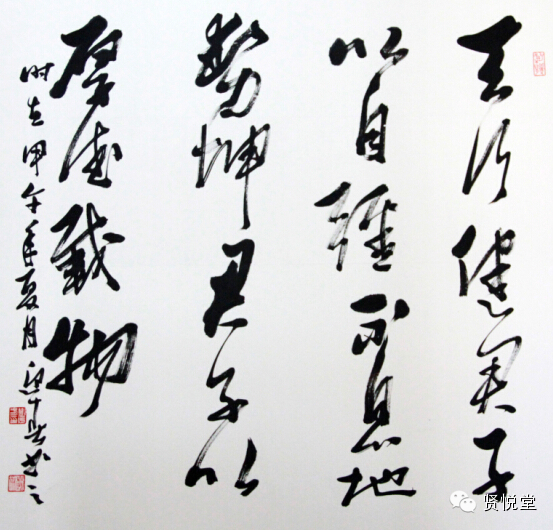 天行健君子
以自强不息地
势坤君子以
厚德载物
时在甲午年夏月书之
贤悦堂